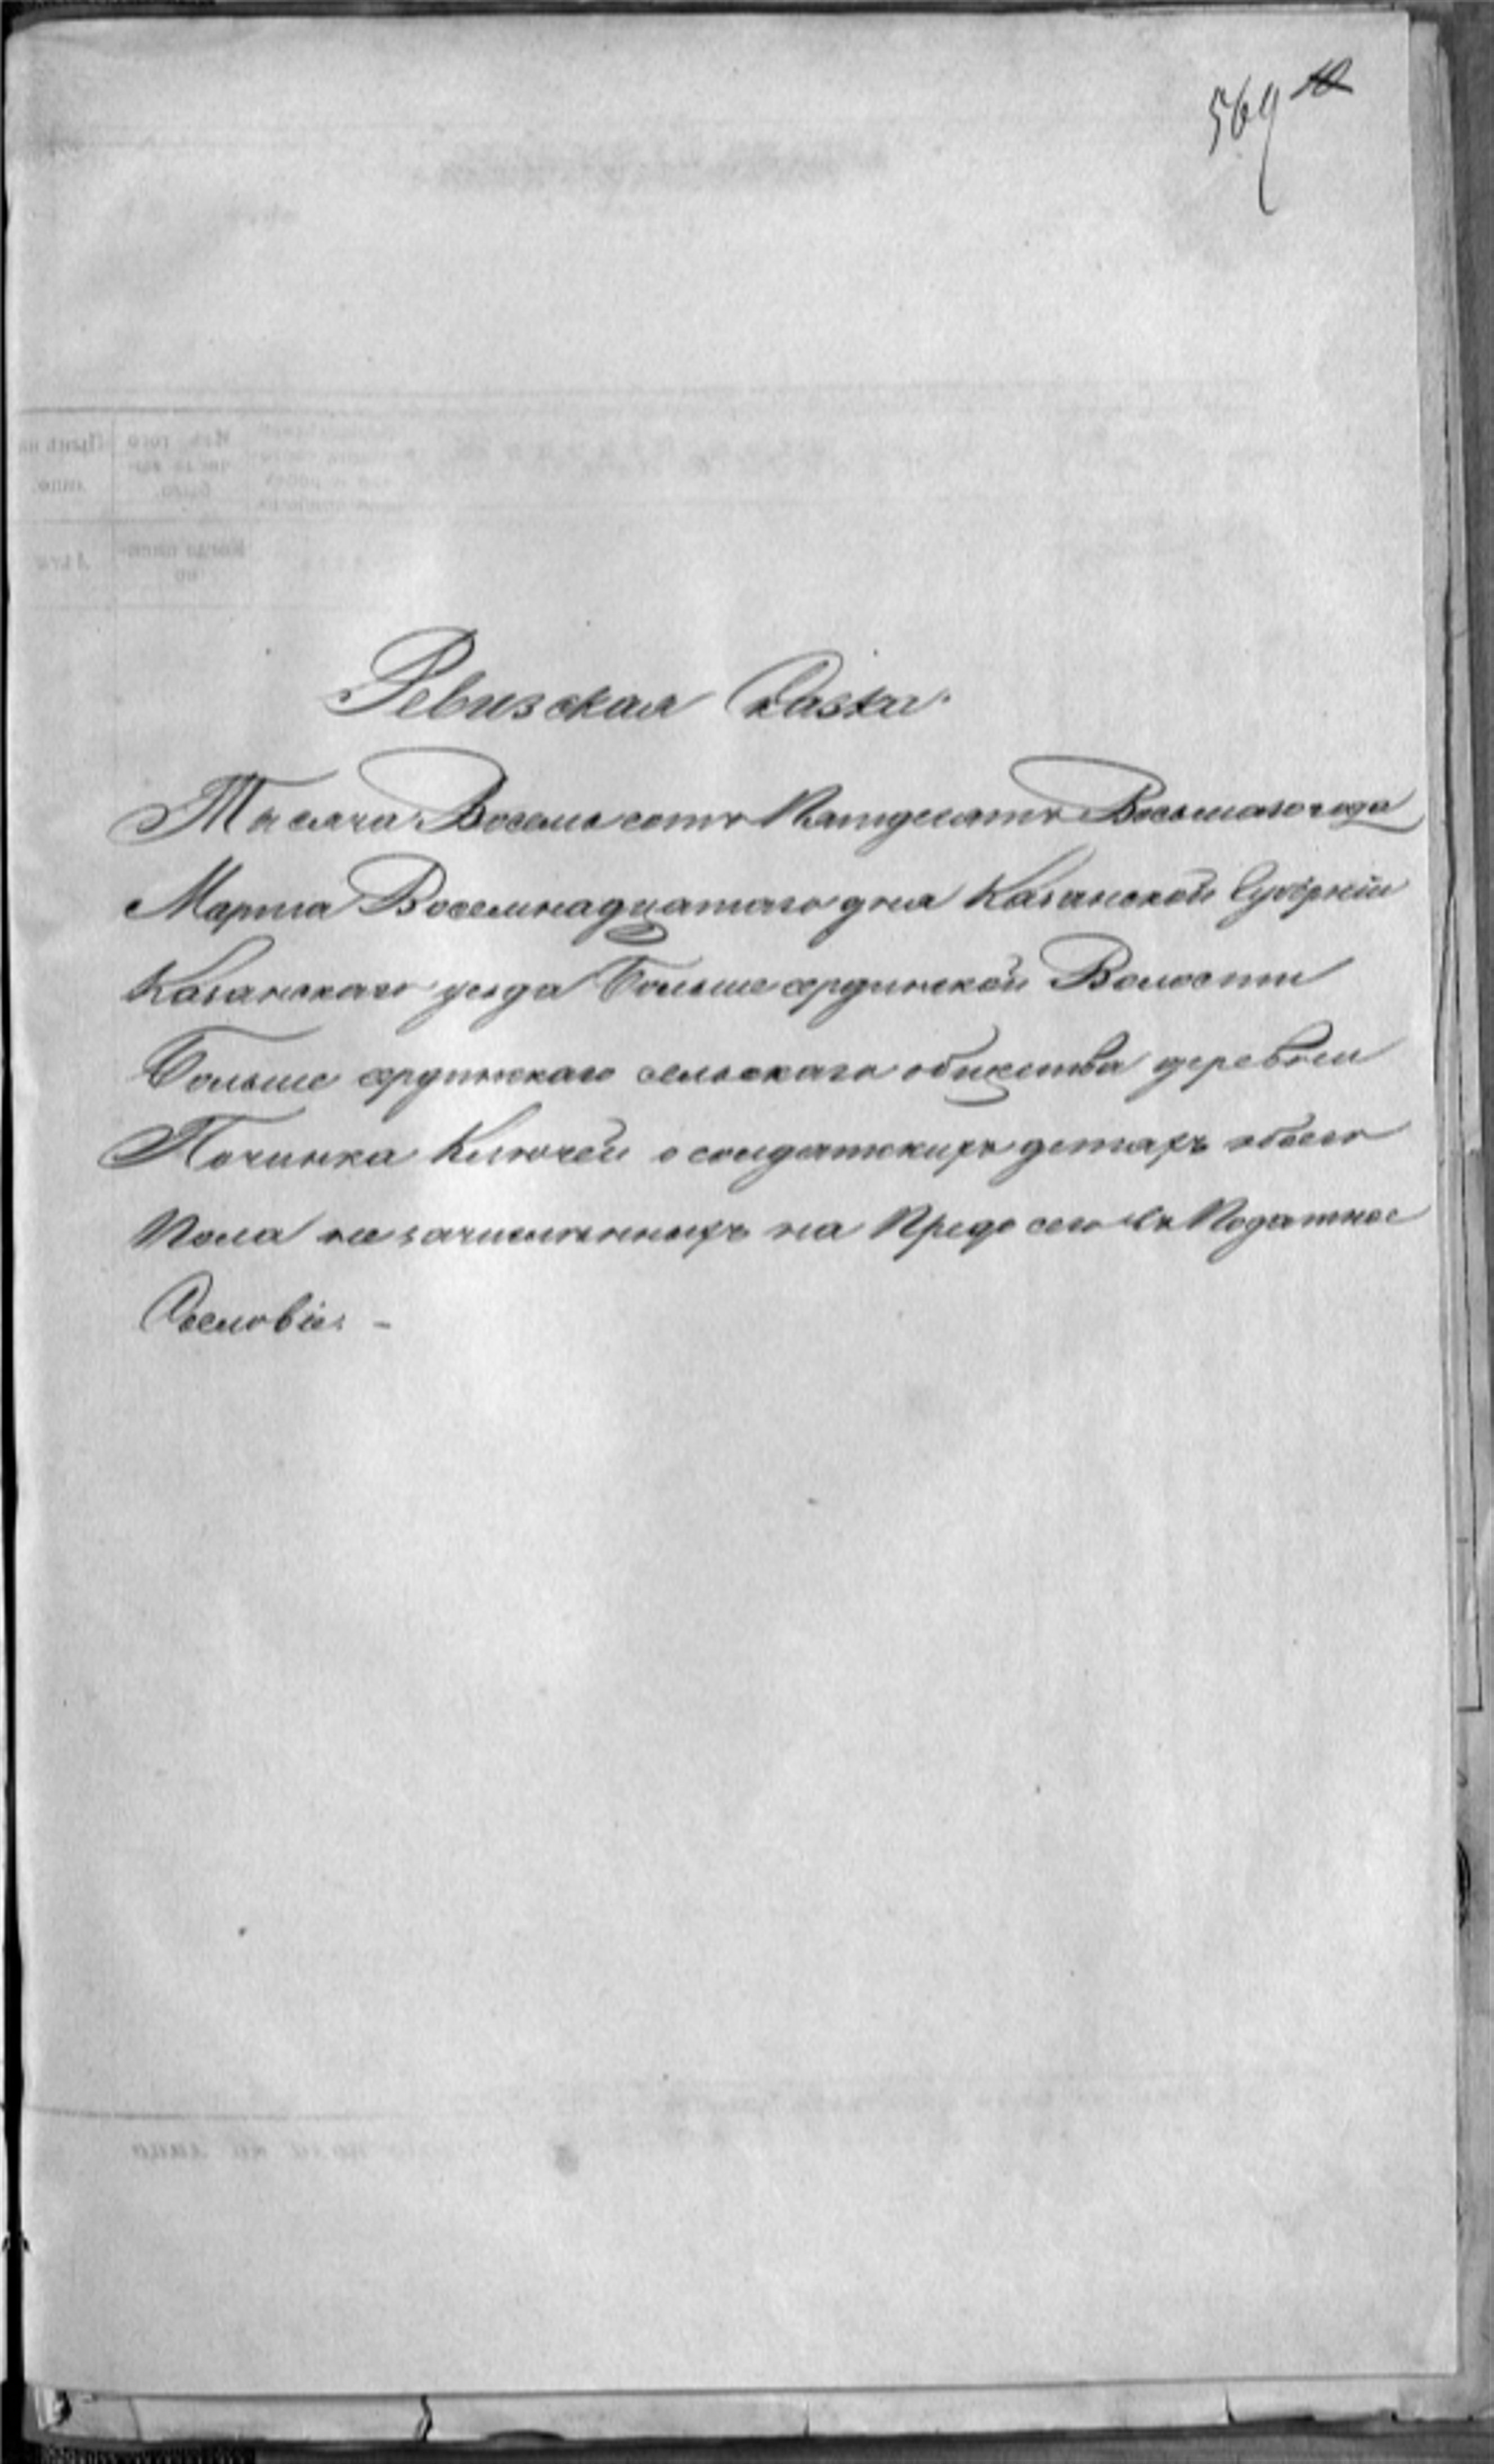 569 10
Ревизская Сказка.
Тысяча Восемьсотъ Пятьдесятъ Восьмаго года
Марта Восемнадцатаго дня Казанской Губерніи
Казанскаго уезда Больше сердинской Волости
Больше сердинскаго сельскаго общества деревни
Починка Ключей о солдатскихъ детяхъ обоего
Пола не зачисленныхъ на Предъ сего въ Податное
Сословіе. -